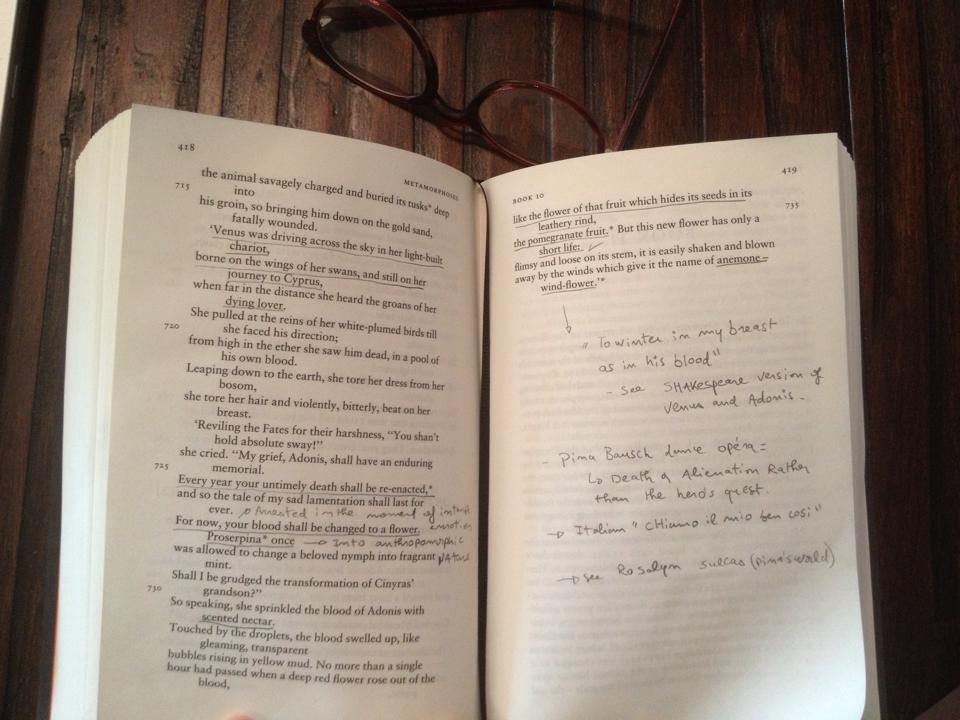 418
METAMORPHOSES
the animal savagely charged and buried its tusks* deep
715
into
his groin, so bringing him down on the gold sand,
fatally wounded.
'Venus was driving across the sky in her light-built
chariot,
borne on the wings of her swans, and still on her
journey to Cyprus,
when far in the distance she heard the groans of her
dying lover.
She pulled at the reins of her white-plumed birds till
720
she faced his direction;
from high in the ether she saw him dead, in a pool of
his own blood.
Leaping down to the earth, she tore her dress from her
bosom,
she tore her hair and violently, bitterly, beat on her
breast.
'Reviling the Fates for their harshness, "You shan't
hold absolute sway!"
she cried. "My grief, Adonis, shall have an enduring
725
memorial.
Every year your untimely death shall be re-enacted,*
and so the tale of my sad lamentation shall last for
ever. Arrested in the moment of intense
emotion
For now, your blood shall be changed to a flower.
Proserpina* once → Into anthropomorphic
nature
was allowed to change a beloved nymph into fragrant
mint.
Shall I be grudged the transformation of Cinyras'
730
grandson?"
So speaking, she sprinkled the blood of Adonis with
scented nectar.
Touched by the droplets, the blood swelled up, like
gleaming, transparent
bubbles rising in yellow mud. No more than a single
hour had passed when a deep red flower rose out of the
blood,
419
BOOK 10
like the flower of that fruit which hides its seeds in its
735
leathery rind,
the pomegranate fruit.* But this new flower has only a
short life:
flimsy and loose on its stem, it is easily shaken and blown
away by the winds which give it the name of anemone –
wind-flower.'*
"To winter in my breast
as in his blood"
- see SHAkespeare version of
Venus and Adonis -
- Pina Bausch dance opéra =
↳ Death & Alienation Rather
than the hero's quest.
→ Italian "CHiamo il mio ben cosi"
→ see Rosalyn sulcas (pina's world)